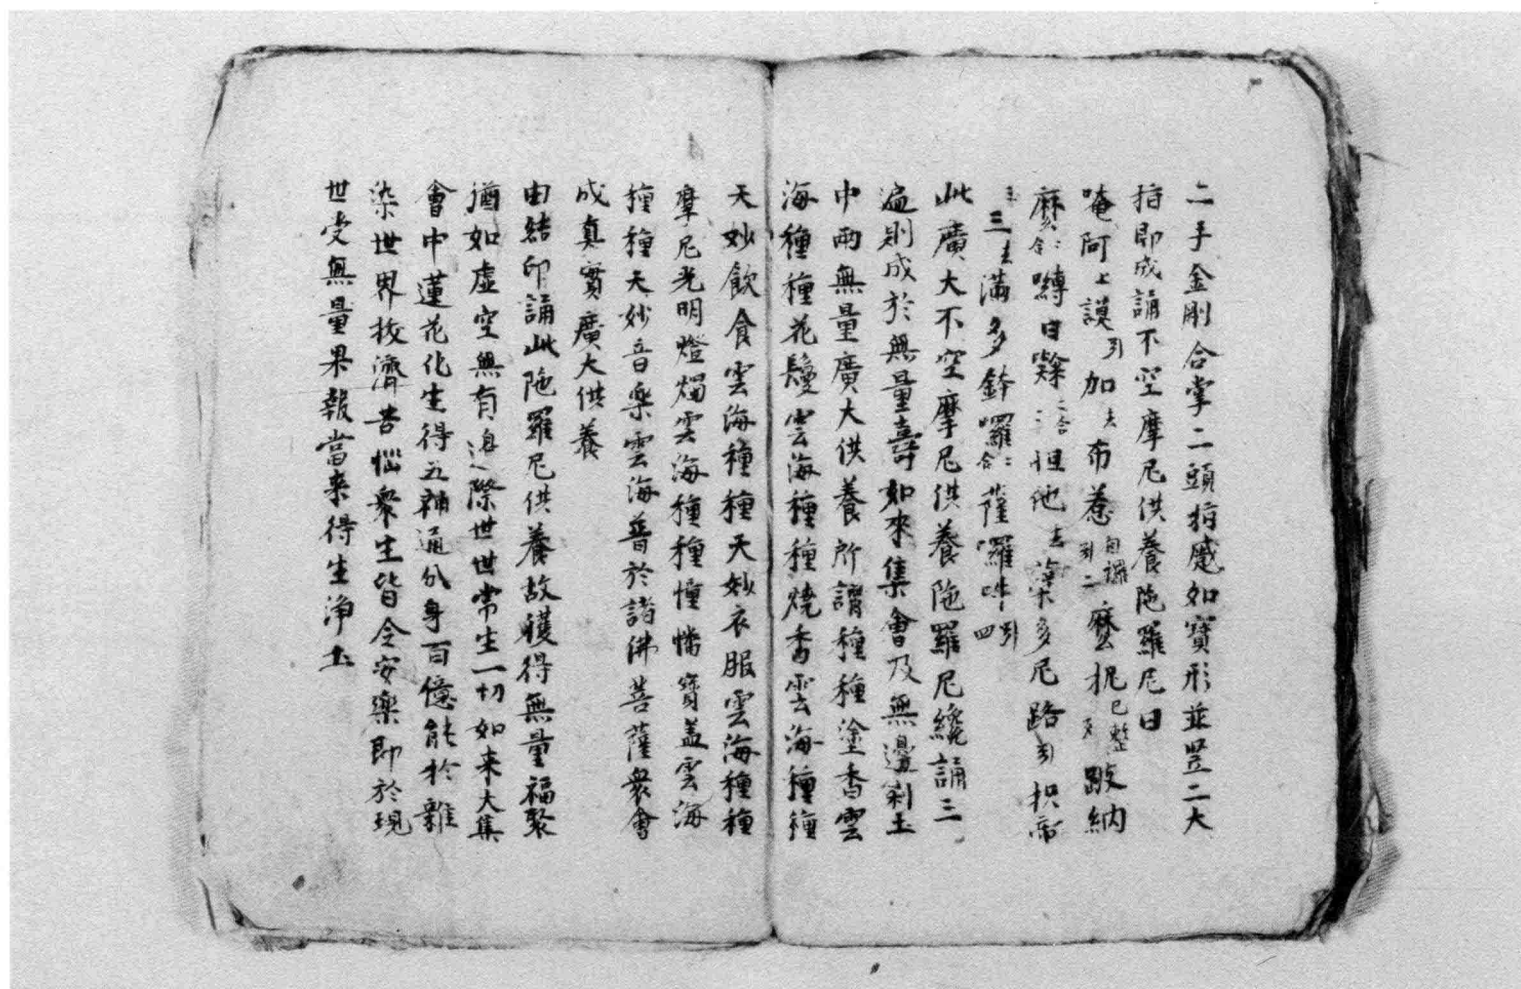 二手金剛合掌二頭指蹙如寶形並竪二大
指即成誦不空摩尼供養陁羅尼曰
唵阿上謨引加去布惹自攞引二麼抳已整跛納
麼合二嚩日囐二合二怛他去蘖多尼路引枳帝
三去滿多鉢囉合二薩囉吽引四
此廣大不空摩尼供養陁羅尼纔誦三
遍則成於無量壽如來集會及無邊剎土
中雨無量廣大供養所謂種種塗香雲
海種種花鬘雲海種種燒香雲海種種
天妙飲食雲海種種天妙衣服雲海種種
摩尼光明燈燭雲海種種幢幡寶盖雲海
種種天妙音樂雲海普於諸佛菩薩衆會
成真實廣大供養
由結印誦此陁羅尼供養故獲得無量福聚
猶如虛空無有邊際世世常生一切如来大集
會中蓮花化生得五神通分身百億能於雜
染世界救濟苦惱衆生皆令安樂即於現
世受無量果報當来得生淨土